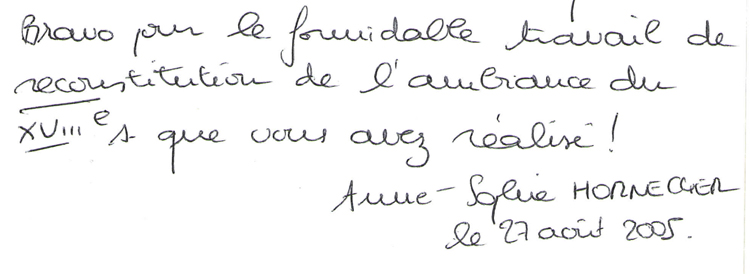 Bravo pour le formidable travail de
reconstitution de l'ambiance du
XVIIIe s. que vous avez réalisé !
Anne-Sophie HORNECKER
le 27 août 2005.